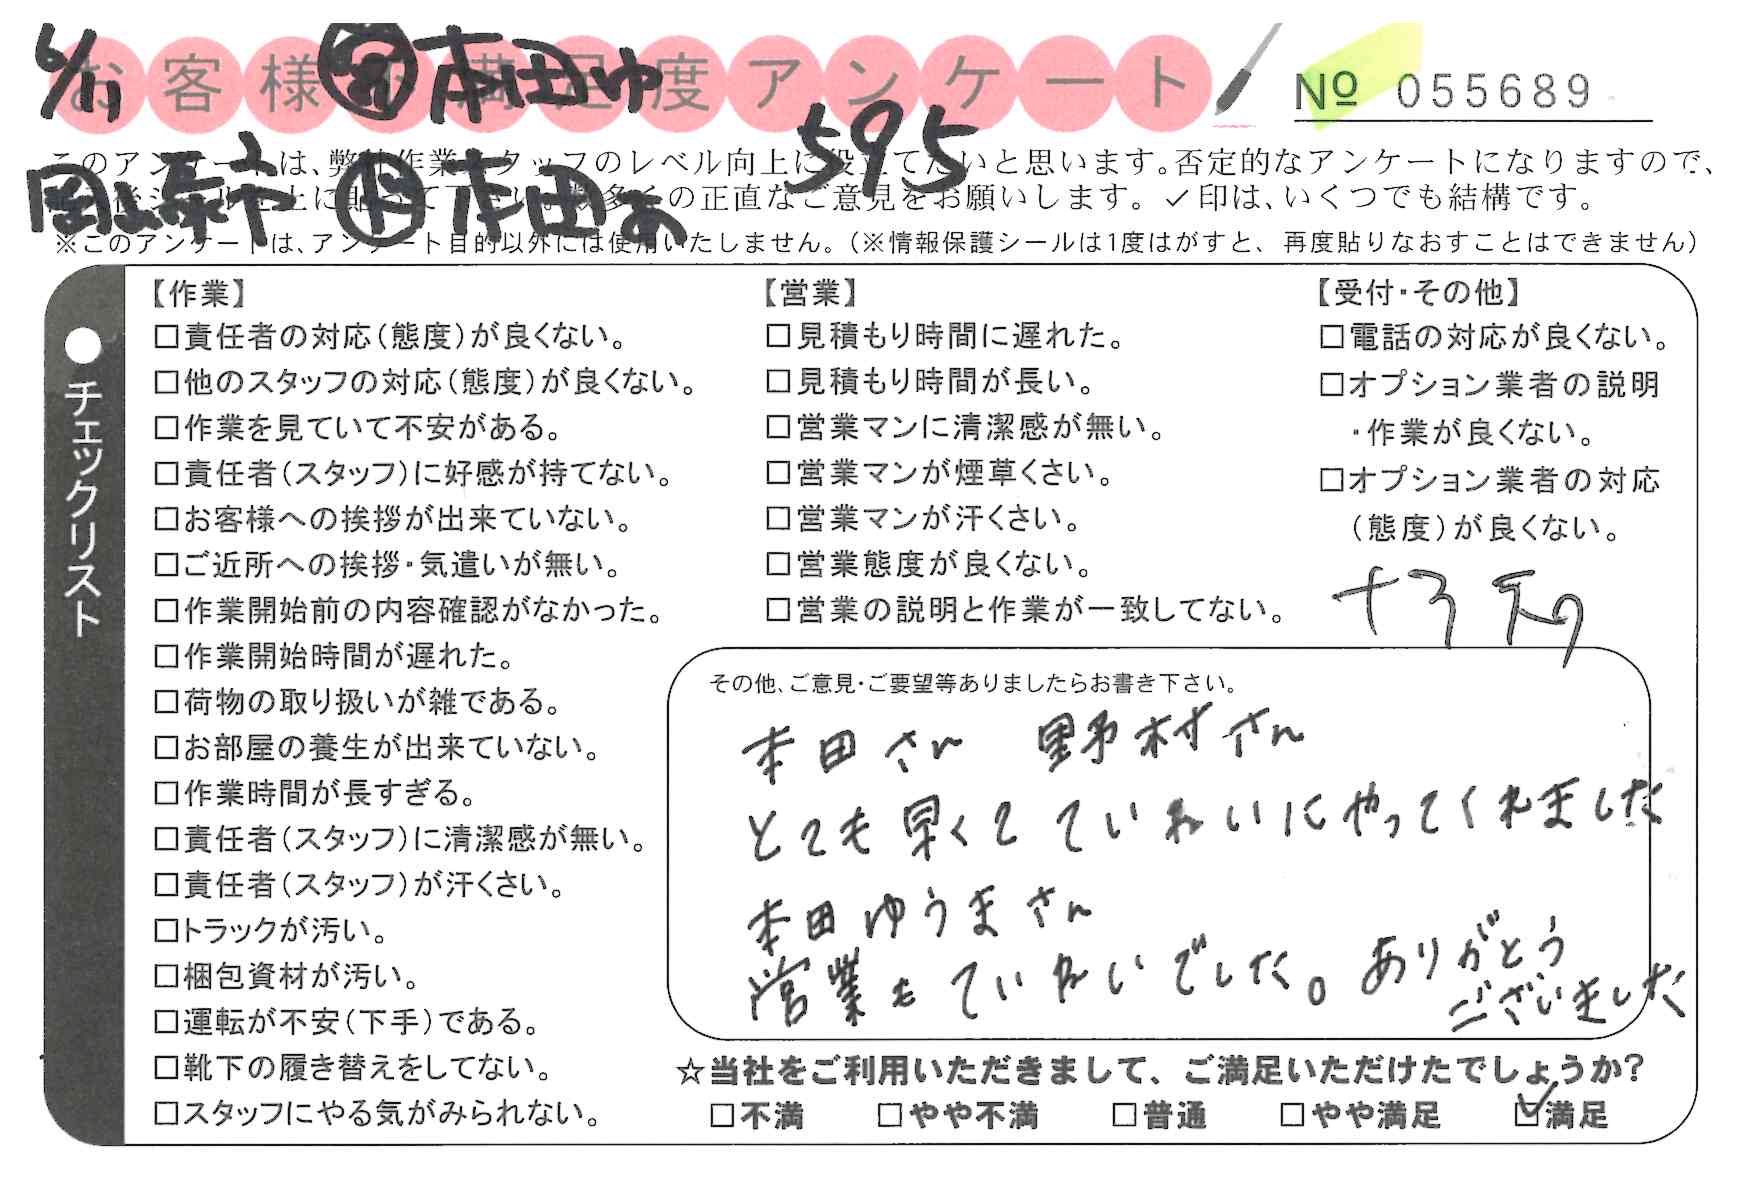 6/11 本田ゆ
お客様不満足度アンケート
№ 055689
595
このアンケートは、弊社作業スタッフのレベル向上に役立てたいと思います。否定的なアンケートになりますので、
岡山市 本田あ
の正直なご意見をお願いします。✓印は、いくつでも結構です。
※このアンケートは、アンケート目的以外には使用いたしません。（※情報保護シールは1度はがすと、再度貼りなおすことはできません）
●チェックリスト
【作業】
□責任者の対応（態度）が良くない。
□他のスタッフの対応（態度）が良くない。
□作業を見ていて不安がある。
□責任者（スタッフ）に好感が持てない。
□お客様への挨拶が出来ていない。
□ご近所への挨拶・気遣いが無い。
□作業開始前の内容確認がなかった。
□作業開始時間が遅れた。
□荷物の取り扱いが雑である。
□お部屋の養生が出来ていない。
□作業時間が長すぎる。
□責任者（スタッフ）に清潔感が無い。
□責任者（スタッフ）が汗くさい。
□トラックが汚い。
□梱包資材が汚い。
□運転が不安（下手）である。
□靴下の履き替えをしてない。
□スタッフにやる気がみられない。
【営業】
□見積もり時間に遅れた。
□見積もり時間が長い。
□営業マンに清潔感が無い。
□営業マンが煙草くさい。
□営業マンが汗くさい。
□営業態度が良くない。
□営業の説明と作業が一致してない。
【受付・その他】
□電話の対応が良くない。
□オプション業者の説明
・作業が良くない。
□オプション業者の対応
（態度）が良くない。
その他、ご意見・ご要望等ありましたらお書き下さい。
本田さん 野村さん
とても早くて ていねいにやってくれました
本田ゆうまさん
営業もていねいでした。ありがとう
ございました
☆当社をご利用いただきまして、ご満足いただけたでしょうか？
□不満 □やや不満 □普通 □やや満足 ☑満足